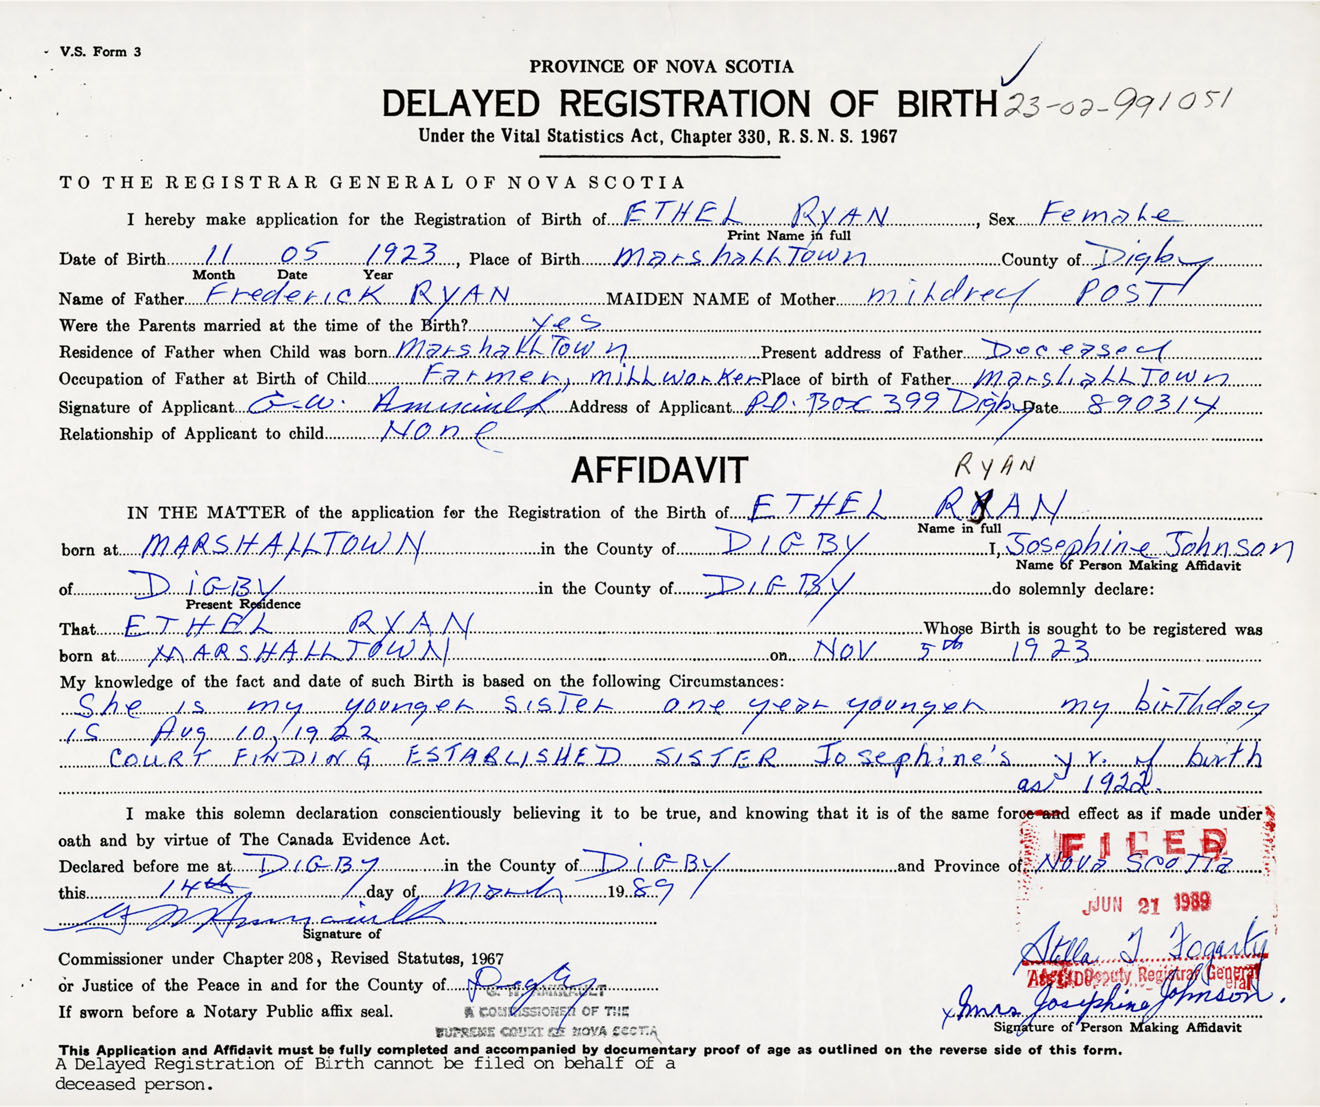 V.S. Form 3
PROVINCE OF NOVA SCOTIA
DELAYED REGISTRATION OF BIRTH 23-02-991051
Under the Vital Statistics Act, Chapter 330, R.S.N.S. 1967
TO THE REGISTRAR GENERAL OF NOVA SCOTIA
I hereby make application for the Registration of Birth of ETHEL RYAN, Sex Female
Print Name in full
Date of Birth 11 05 1923, Place of Birth Marshalltown County of Digby
Month Date Year
Name of Father Frederick RYAN MAIDEN NAME of Mother mildred POST
Were the Parents married at the time of the Birth? yes
Residence of Father when Child was born Marshalltown Present address of Father Deceased
Occupation of Father at Birth of Child Farmer, millworker Place of birth of Father Marshalltown
Signature of Applicant G.W. Address of Applicant P.O. Box 399 Digby Date 890314
Relationship of Applicant to child None
AFFIDAVIT RYAN
IN THE MATTER of the application for the Registration of the Birth of ETHEL RYAN
Name in full
born at MARSHALLTOWN in the County of DIGBY I, Josephine Johnson
Name of Person Making Affidavit
of DIGBY in the County of DIGBY do solemnly declare:
Present Residence
That ETHEL RYAN Whose Birth is sought to be registered was
born at MARSHALLTOWN on NOV 5th 1923
My knowledge of the fact and date of such Birth is based on the following Circumstances:
She is my younger sister one year younger my birthday
is Aug 10, 1922
COURT FINDING ESTABLISHED SISTER Josephine's yr. of birth
as 1922.
I make this solemn declaration conscientiously believing it to be true, and knowing that it is of the same force and effect as if made under
oath and by virtue of The Canada Evidence Act.
FILED
Declared before me at DIGBY in the County of DIGBY and Province of NOVA SCOTIA
this 14th day of March 1989
JUN 21 1989
Signature of
Stella T Fogarty
Commissioner under Chapter 208, Revised Statutes, 1967
Deputy Registrar General
or Justice of the Peace in and for the County of Digby
Mrs Josephine Johnson.
If sworn before a Notary Public affix seal. A COMMISSIONER OF THE
Signature of Person Making Affidavit
SUPREME COURT OF NOVA SCOTIA
This Application and Affidavit must be fully completed and accompanied by documentary proof of age as outlined on the reverse side of this form.
A Delayed Registration of Birth cannot be filed on behalf of a
deceased person.